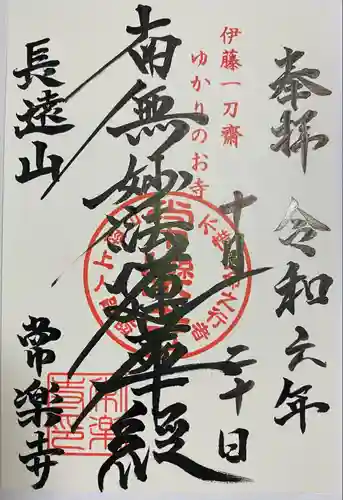 奉拝 令和六年
十月二十日
伊藤一刀斎
ゆかりのお寺
南無妙法蓮華経
長遠山
常楽寺